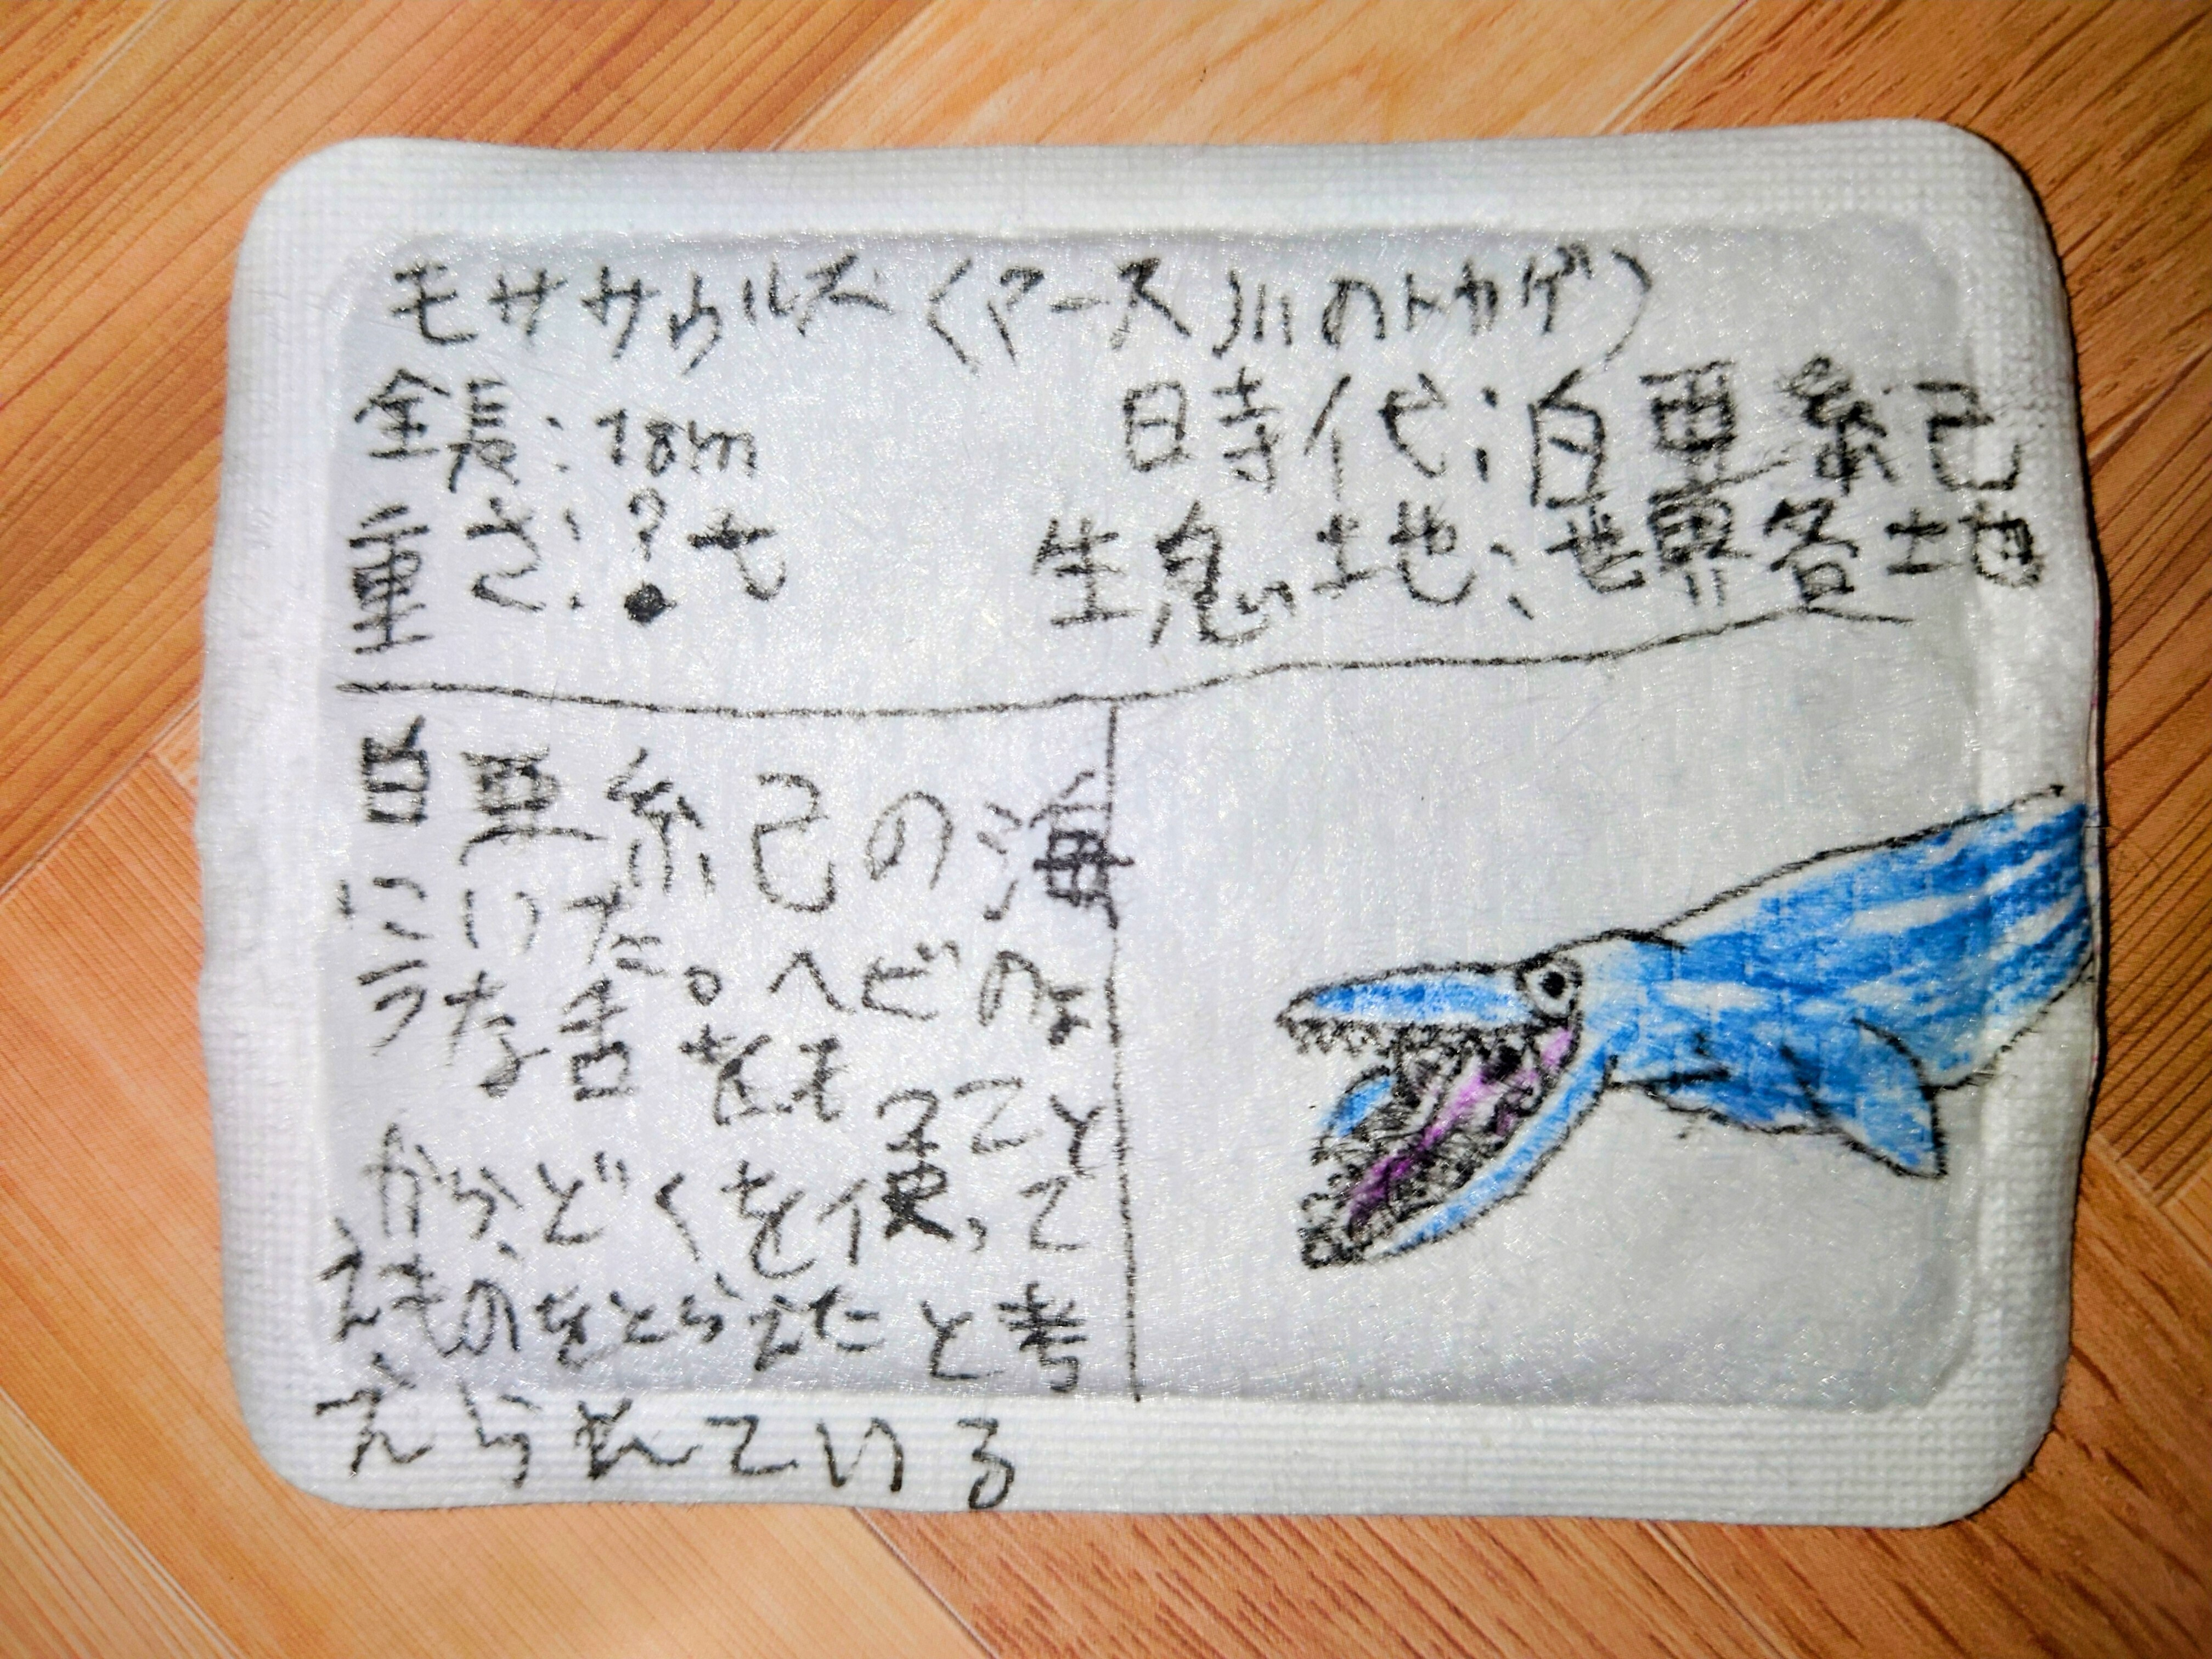 モササウルス(マース川のトカゲ)
全長:18m 時代:白亜紀
重さ:?t 生息地:世界各地
白亜紀の海
にいた。ヘビのよ
うな舌をもつこと
から、どくを使って
えものをとらえたと考
えられている